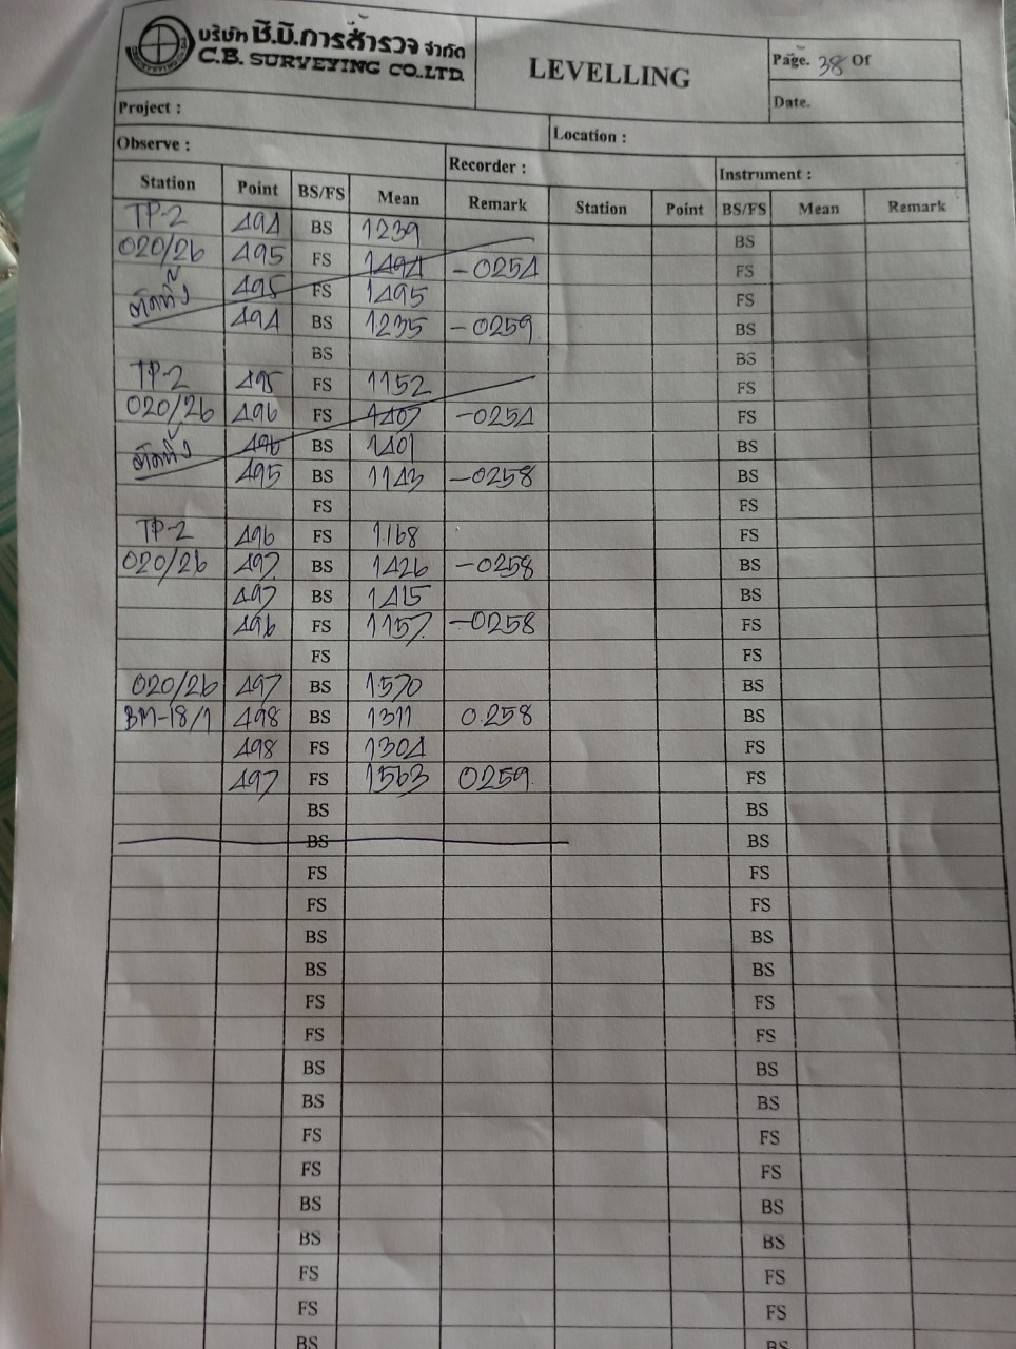 บริษัท ซี.บี.การสำรวจ จำกัด
C.B. SURVEYING CO.,LTD.
LEVELLING
Page. 38 Of
Date.
Project :
Location :
Observe :
Recorder :
Instrument :
Station Point BS/FS Mean Remark Station Point BS/FS Mean Remark
TP-2 494 BS 1239 BS
020/26 495 FS 1494 -0254 FS
ตัดทิ้ง 495 FS 1495 FS
494 BS 1235 -0259 BS
BS BS
TP-2 495 FS 1152 FS
020/26 496 FS 1407 -0254 FS
ตัดทิ้ง 496 BS 1401 BS
495 BS 1143 -0258 BS
FS FS
TP-2 496 FS 1168 FS
020/26 497 BS 1426 -0258 BS
497 BS 1415 BS
496 FS 1157 -0258 FS
FS FS
020/26 497 BS 1570 BS
BM-18/1 498 BS 1311 0.258 BS
498 FS 1304 FS
497 FS 1563 0259 FS
BS BS
BS BS
FS FS
FS FS
BS BS
BS BS
FS FS
FS FS
BS BS
BS BS
FS FS
FS FS
BS BS
BS BS
FS FS
FS FS
BS BS